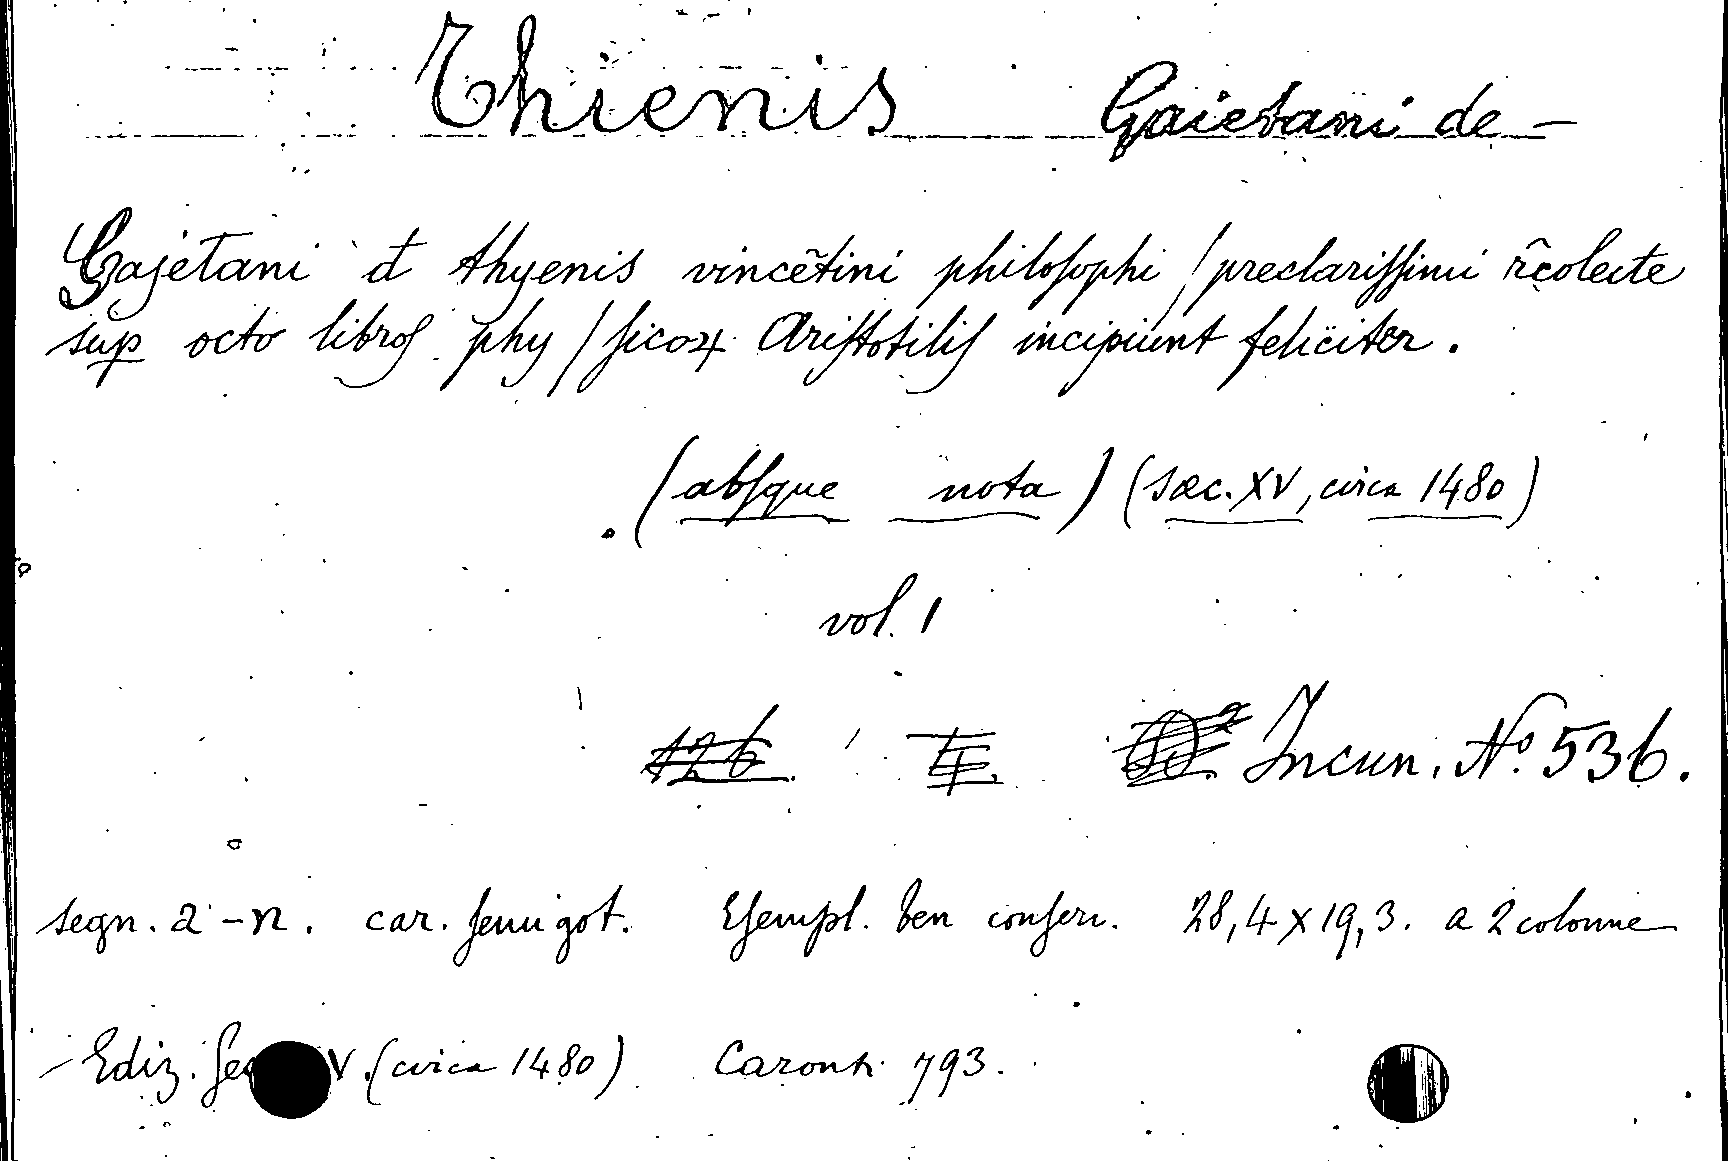 Thienis Gaietani de –
Gajetani đ thyenis vincẽtini philoſophi / preclariſſimi r̃colecte
suꝑ octo libroſ phy / ſicoꝝ Ariſtotiliſ incipiunt feliciter.
(abſque nota) (sæc. XV, circa 1480)
vol. 1
126 Incun. Nº 536.
segn. a - n. car. ſemigot. Eſempl. ben conſerv. 28,4 x 19,3. a 2 colonne
Ediz. V. (circa 1480) Caronti 793.